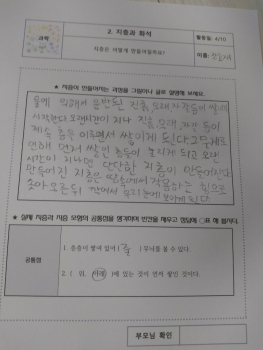 과학
2. 지층과 화석
활동일: 4/10
지층은 어떻게 만들어질까요?
이름:
★ 지층이 만들어지는 과정을 그림이나 글로 설명해 보세요.
물에 의해서 운반된 진흙, 모래, 자갈 등이 쌓여
시작한다 오랜시간이 지나 진흙, 모래, 자갈 등이
계속 층을 이루면서 쌓이게 된다 그 무게로
인해 먼저 쌓인 층들이 눌리게 되고 오랜
시간이 지나면 단단한 지층이 만들어진다
만들어진 지층은 땅속에서 작용하는 힘으로
솟아 오른 뒤 깎여서 우리 눈에 보이게 된다.
★ 실제 지층과 지층 모형의 공통점을 생각하며 빈칸을 채우고 정답에 ○표 해 봅시다.
공통점
1. 층층이 쌓여 있어 ( 줄 ) 무늬를 볼 수 있다.
2. ( 위, 아래 )에 있는 것이 먼저 쌓인 것이다.
부모님 확인